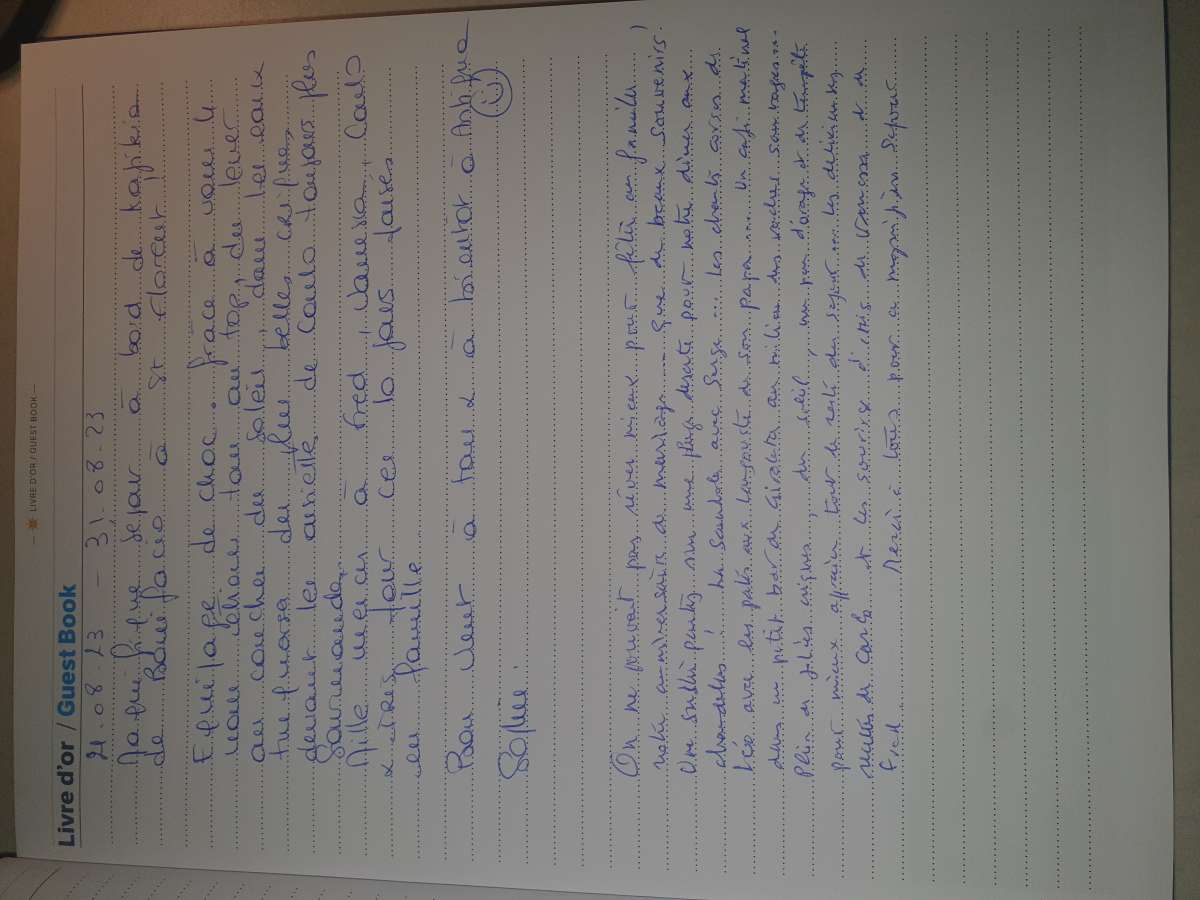 LIVRE D'OR / GUEST BOOK
Livre d'or / Guest Book
21.08.23 – 31.08.23
Magnifique séjour à bord de Kajikia
de Bonifacio à St Florent!
Equipage de choc. grâce à vous 4
nous étions tous au top, du lever
au coucher du soleil, dans les eaux
turquoises des plus belles criques,
devant les assiettes de Carlo toujours plus
gourmandes.
Mille mercis à Fred, Vanessa, Carlo
& pour ces 10 jours passés
en famille
Bon vent à tous & à bientôt à Antigua
Sophie.
On ne pouvait pas rêver mieux pour fêter en famille
notre anniversaire de mariage.... que de beaux souvenirs.
Une sublime partie sur une plage déserte pour notre dîner aux
chandelles, la Scandola avec Serge.... les chants corses de
Léo avec les pâtes aux langoustes de son papa.... un café matinal
dans un petit bar de Girolata au milieu des vaches sauvages...
Plein de jolies criques, du soleil, un peu d'orage et de tempête
pour mieux apprécier tout le reste du séjour.... les délicieux
de Carlo et les sourires d'Enis de Vanessa et de
Fred Merci à tous pour ce magnifique séjour